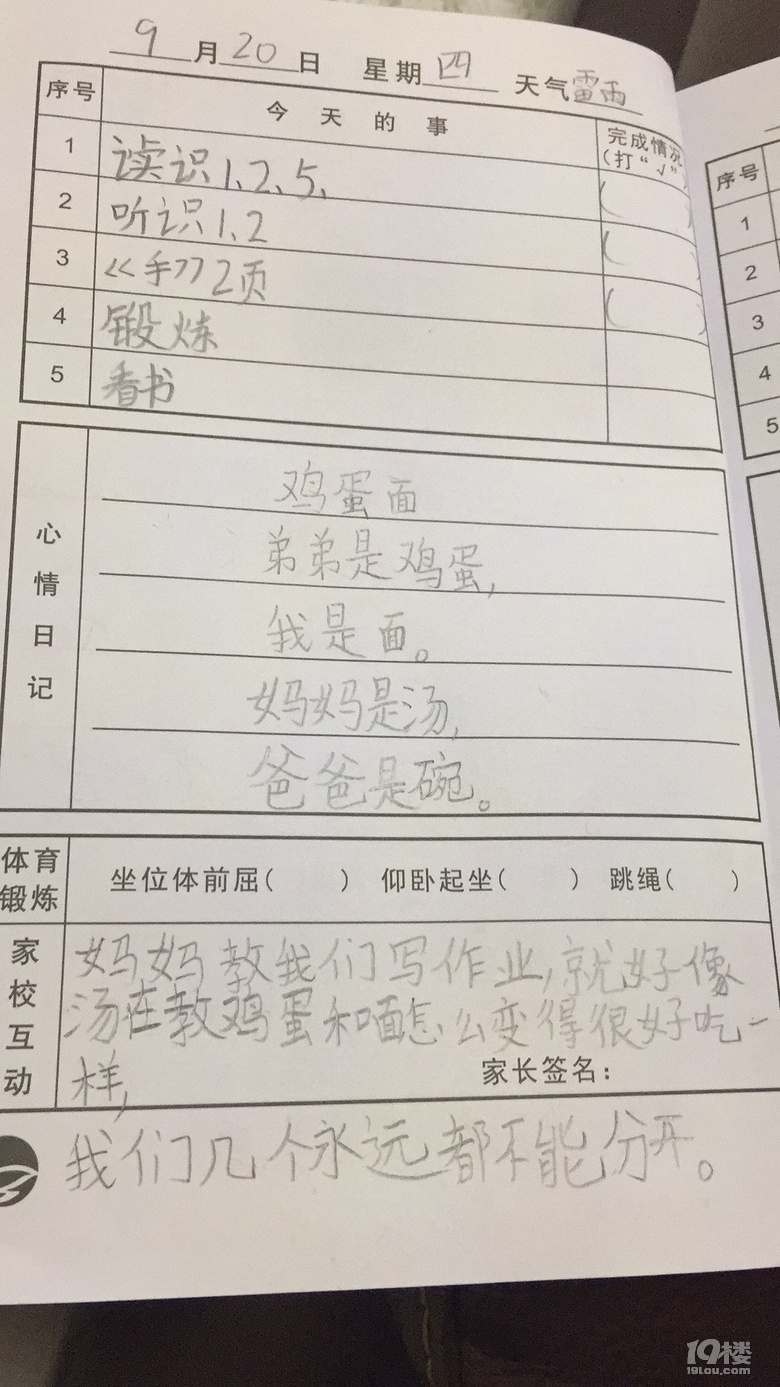 9月20日 星期四 天气雷雨
序号 今天的事 完成情况(打“√”)
1 读识1、2、5、 ( )
2 听识1、2 ( )
3 《手》2页 ( )
4 锻炼
5 看书
心情日记
鸡蛋面
弟弟是鸡蛋,
我是面。
妈妈是汤,
爸爸是碗。
体育锻炼 坐位体前屈( ) 仰卧起坐( ) 跳绳( )
家校互动
妈妈教我们写作业,就好像
汤在教鸡蛋和面怎么变得很好吃一
样,
家长签名:
我们几个永远都不能分开。
序号
1
2
3
4
5
19楼
19lou.com